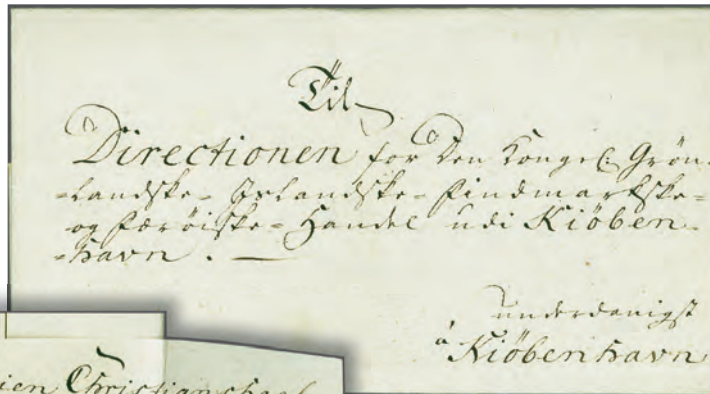 Til
Directionen for Den Kongel: Grön-
=landske- Islandske- Findmarkske-
og Færöiske- Handel udi Kiöben-
=havn. —
underdanigst
á Kiöbenhavn
Christianshaab